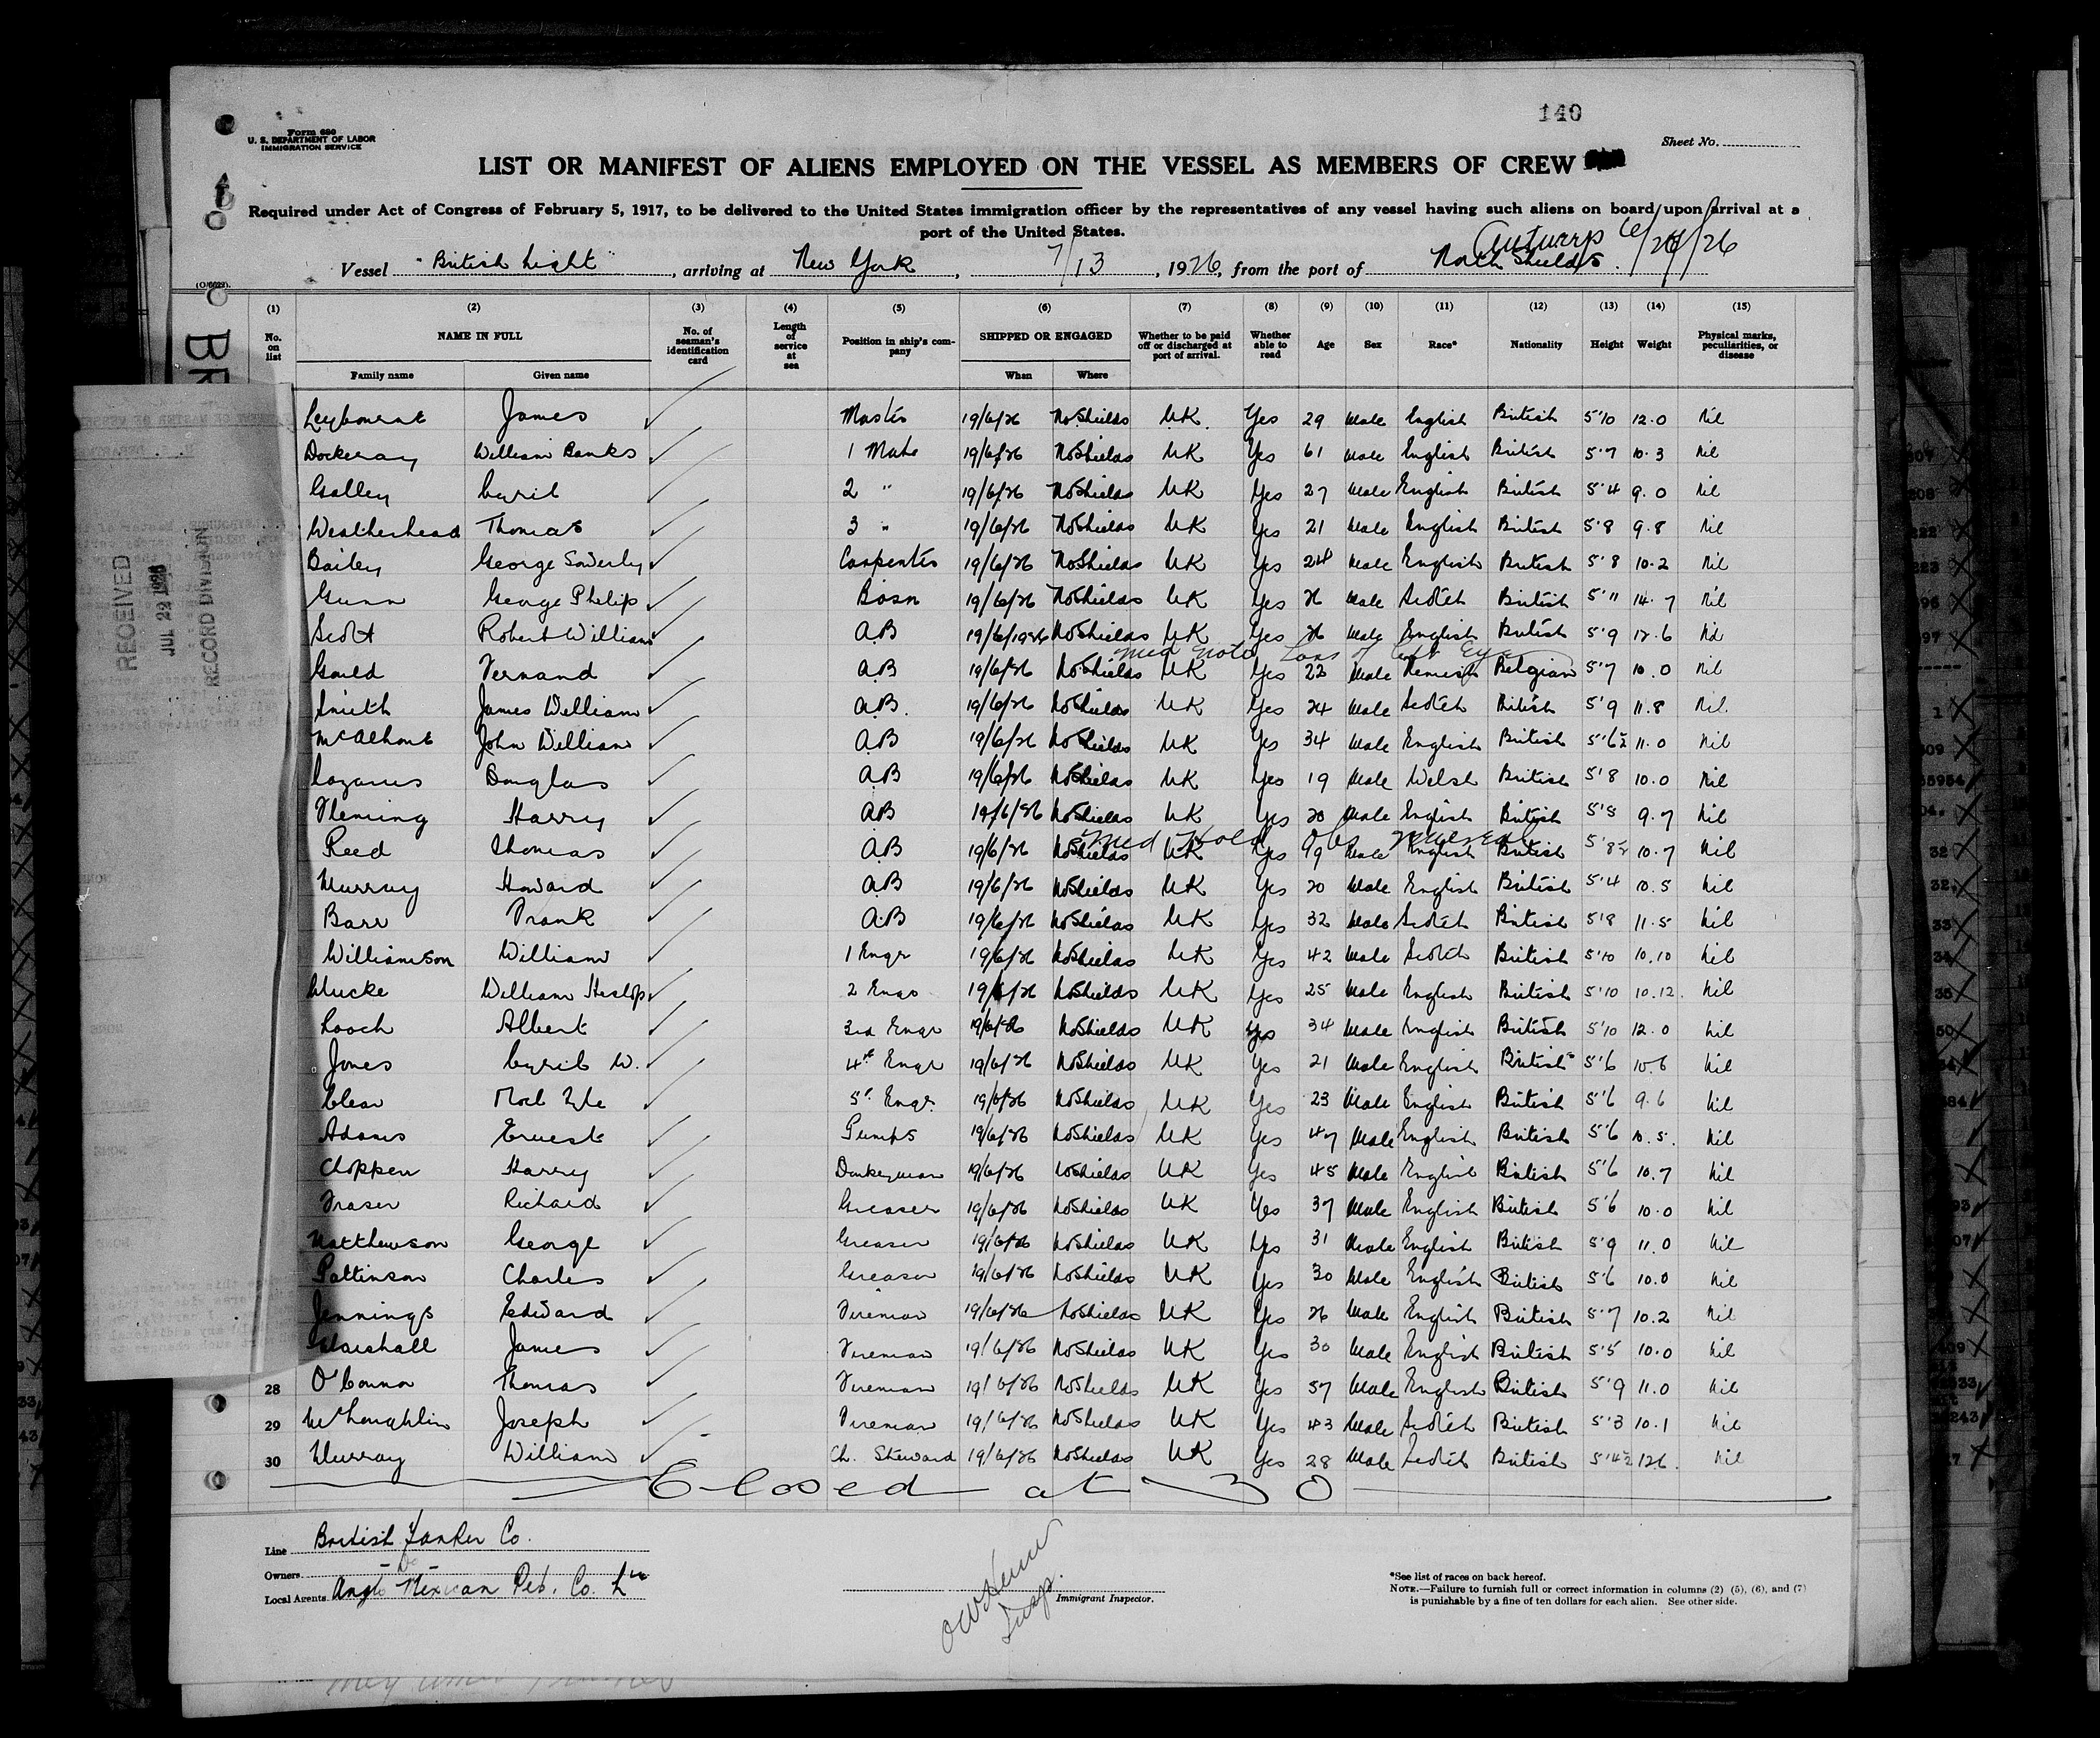 140
Form 680
U. S. DEPARTMENT OF LABOR
IMMIGRATION SERVICE
Sheet No.
LIST OR MANIFEST OF ALIENS EMPLOYED ON THE VESSEL AS MEMBERS OF CREW
Required under Act of Congress of February 5, 1917, to be delivered to the United States immigration officer by the representatives of any vessel having such aliens on board upon arrival at a
port of the United States.
Antwerp 6/26/26
Vessel "British Light", arriving at New York, 7/13, 1926, from the port of North Shields.
(1) (2) (3) (4) (5) (6) (7) (8) (9) (10) (11) (12) (13) (14) (15)
No. on list NAME IN FULL No. of seaman's identification card Length of service at sea Position in ship's company SHIPPED OR ENGAGED Whether to be paid off or discharged at port of arrival. Whether able to read Age Sex Race* Nationality Height Weight Physical marks, peculiarities, or disease
Family name Given name When Where
Leybourne James Master 19/6/26 No Shields UK. Yes 29 Male English British 5'10 12.0 Nil
Dockeray William Banks 1 Mate 19/6/26 No Shields UK Yes 61 Male English British 5'7 10.3 Nil
Galley Cyril 2 " 19/6/26 No Shields UK Yes 27 Male English British 5'4 9.0 Nil
Weatherhead Thomas 3 " 19/6/26 No Shields UK Yes 21 Male English British 5'8 9.8 Nil
Bailey George Sowerby Carpenter 19/6/26 No Shields UK Yes 24 Male English British 5'8 10.2 Nil
Gunn George Philip Bosn 19/6/26 No Shields UK Yes 26 Male Scotch British 5'11 14.7 Nil
Scott Robert William A.B 19/6/1926 No Shields UK Yes 26 Male English British 5'9 12.6 Nil
Med Note Loss of left Eye
Gould Fernand A.B 19/6/26 No Shields UK Yes 22 Male Flemish Belgian 5'7 10.0 Nil
Smith James William A.B. 19/6/26 No Shields UK Yes 24 Male Scotch British 5'9 11.8 Nil
John William A.B 19/6/26 No Shields UK Yes 34 Male English British 5'6½ 11.0 Nil
Lazarus Douglas A.B 19/6/26 No Shields UK Yes 19 Male Welsh British 5'8 10.0 Nil
Fleming Harry A.B 19/6/26 No Shields UK Yes 20 Male English British 5'8 9.7 Nil
Med Hold
Reed Thomas A.B 19/6/26 No Shields UK Yes 19 Male English British 5'8½ 10.7 Nil
Murray Howard A.B 19/6/26 No Shields UK Yes 20 Male English British 5'4 10.5 Nil
Barr Frank A.B 19/6/26 No Shields UK Yes 32 Male Scotch British 5'8 11.5 Nil
Williamson William 1 Engr 19/6/26 No Shields UK Yes 42 Male Scotch British 5'10 10.10 Nil
William Heslop 2 Engr 19/6/26 No Shields UK Yes 25 Male English British 5'10 10.12. Nil
Looch Albert 3rd Engr 19/6/26 No Shields UK Yes 34 Male English British 5'10 12.0 Nil
Jones Cyril W. 4th Engr 19/6/26 No Shields UK Yes 21 Male English British 5'6 10.6 Nil
5th Engr. 19/6/26 No Shields UK Yes 23 Male English British 5'6 9.6 Nil
Adams Ernest Pumps 19/6/26 No Shields UK Yes 47 Male English British 5'6 10.5. Nil
Cloppen Harry Donkeyman 19/6/26 No Shields UK Yes 45 Male English British 5'6 10.7 Nil
Fraser Richard Greaser 19/6/26 No Shields UK Yes 37 Male English British 5'6 10.0 Nil
Matthewson George Greaser 19/6/26 No Shields UK Yes 31 Male English British 5'9 11.0 Nil
Pattinson Charles Greaser 19/6/26 No Shields UK Yes 30 Male English British 5'6 10.0 Nil
Jennings Edward Fireman 19/6/26 No Shields UK Yes 26 Male English British 5'7 10.2 Nil
Marshall James Fireman 19/6/26 No Shields UK Yes 30 Male English British 5'5 10.0 Nil
28 O'Connor Thomas Fireman 19/6/26 No Shields UK Yes 57 Male English British 5'9 11.0 Nil
29 McLoughlin Joseph Fireman 19/6/26 No Shields UK Yes 43 Male Scotch British 5'3 10.1 Nil
30 Murray William Ch. Steward 19/6/26 No Shields UK Yes 28 Male Scotch British 5'4½ 12.6. Nil
Closed at 30
Line British Tanker Co.
Owners Do
Local Agents Anglo Mexican Pet. Co. Ltd
Insp.
Immigrant Inspector.
*See list of races on back hereof.
NOTE.—Failure to furnish full or correct information in columns (2) (5), (6), and (7)
is punishable by a fine of ten dollars for each alien. See other side.
RECEIVED
JUL 22 1926
RECORD DIVISION